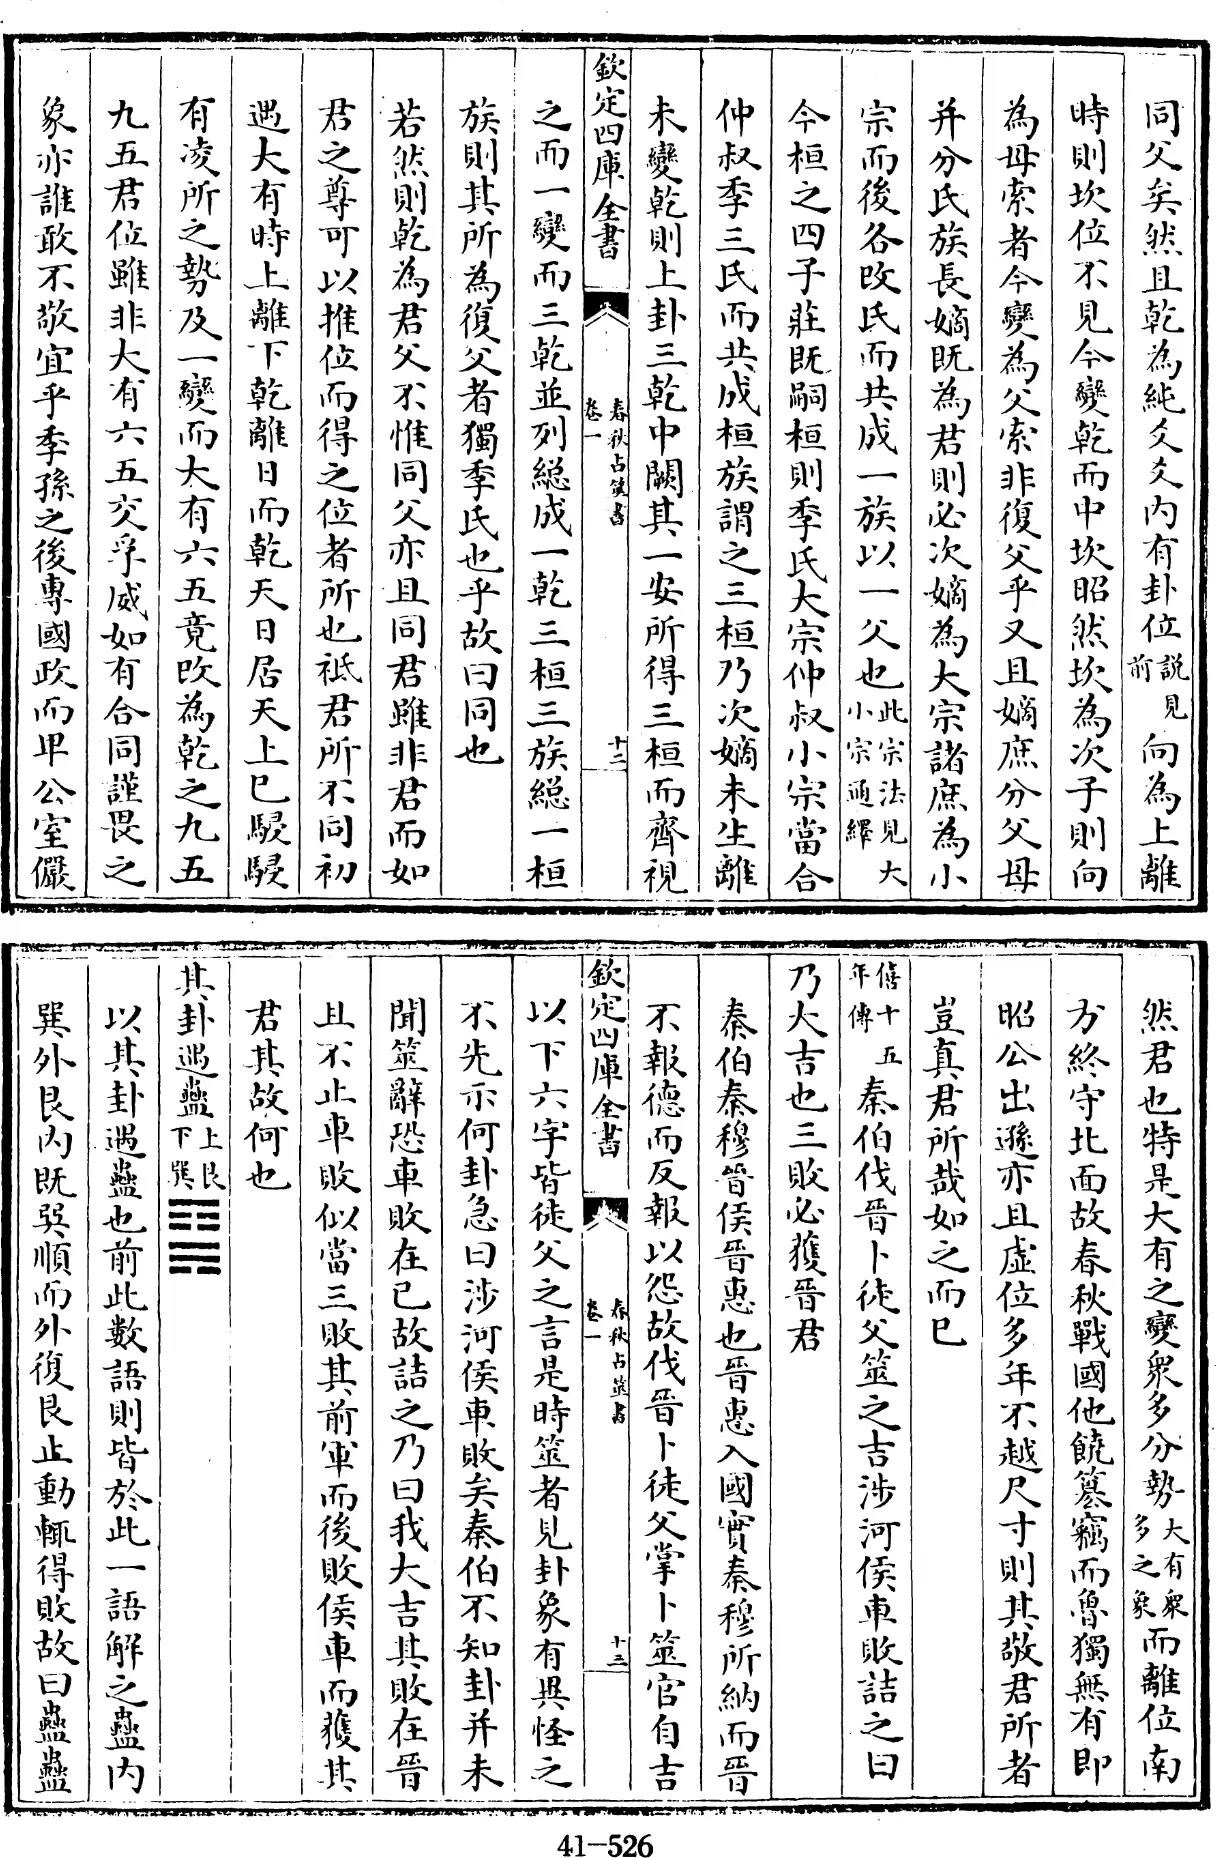 同父矣然且乾為純爻爻内有卦位說見前向為上離
時則坎位不見今變乾而中坎昭然坎為次子則向
為母索者今變為父索非復父乎又且嫡庶分父母
并分氏族長嫡既為君則必次嫡為大宗諸庶為小
宗而後各改氏而共成一族以一父也此宗法見大小宗通繹
今桓之四子莊既嗣桓則季氏大宗仲叔小宗當合
仲叔季三氏而共成桓族謂之三桓乃次嫡未生離
未變乾則上卦三乾中闕其一安所得三桓而齊視
欽定四庫全書
春秋占筮書
卷一
十二
之而一變而三乾並列総成一乾三桓三族総一桓
族則其所為復父者獨季氏也乎故曰同也
若然則乾為君父不惟同父亦且同君雖非君而如
君之尊可以推位而得之位者所也祇君所不同初
遇大有時上離下乾離日而乾天日居天上已駸駸
有凌所之勢及一變而大有六五竟改為乾之九五
九五君位雖非大有六五交孚威如有合同謹畏之
象亦誰敢不敬宜乎季孫之後專國政而卑公室儼
然君也特是大有之變衆多分勢大有衆多之象而離位南
方終守北面故春秋戰國他饒簒竊而魯獨無有即
昭公出遜亦且虛位多年不越尺寸則其敬君所者
豈真君所哉如之而已
僖十五年傳秦伯伐晉卜徒父筮之吉涉河侯車敗詰之曰
乃大吉也三敗必獲晉君
秦伯秦穆晉侯晉惠也晉惠入國實秦穆所納而晉
不報德而反報以怨故伐晉卜徒父掌卜筮官自吉
欽定四庫全書
春秋占筮書
卷一
十三
以下六字皆徒父之言是時筮者見卦象有異怪之
不先示何卦急曰涉河侯車敗矣秦伯不知卦并未
聞筮辭恐車敗在已故詰之乃曰我大吉其敗在晉
且不止車敗似當三敗其前軍而後敗侯車而獲其
君其故何也
其卦遇蠱上艮下巽
以其卦遇蠱也前此數語則皆於此一語解之蠱内
巽外艮内既巽順而外復艮止動輒得敗故曰蠱蠱
41-526